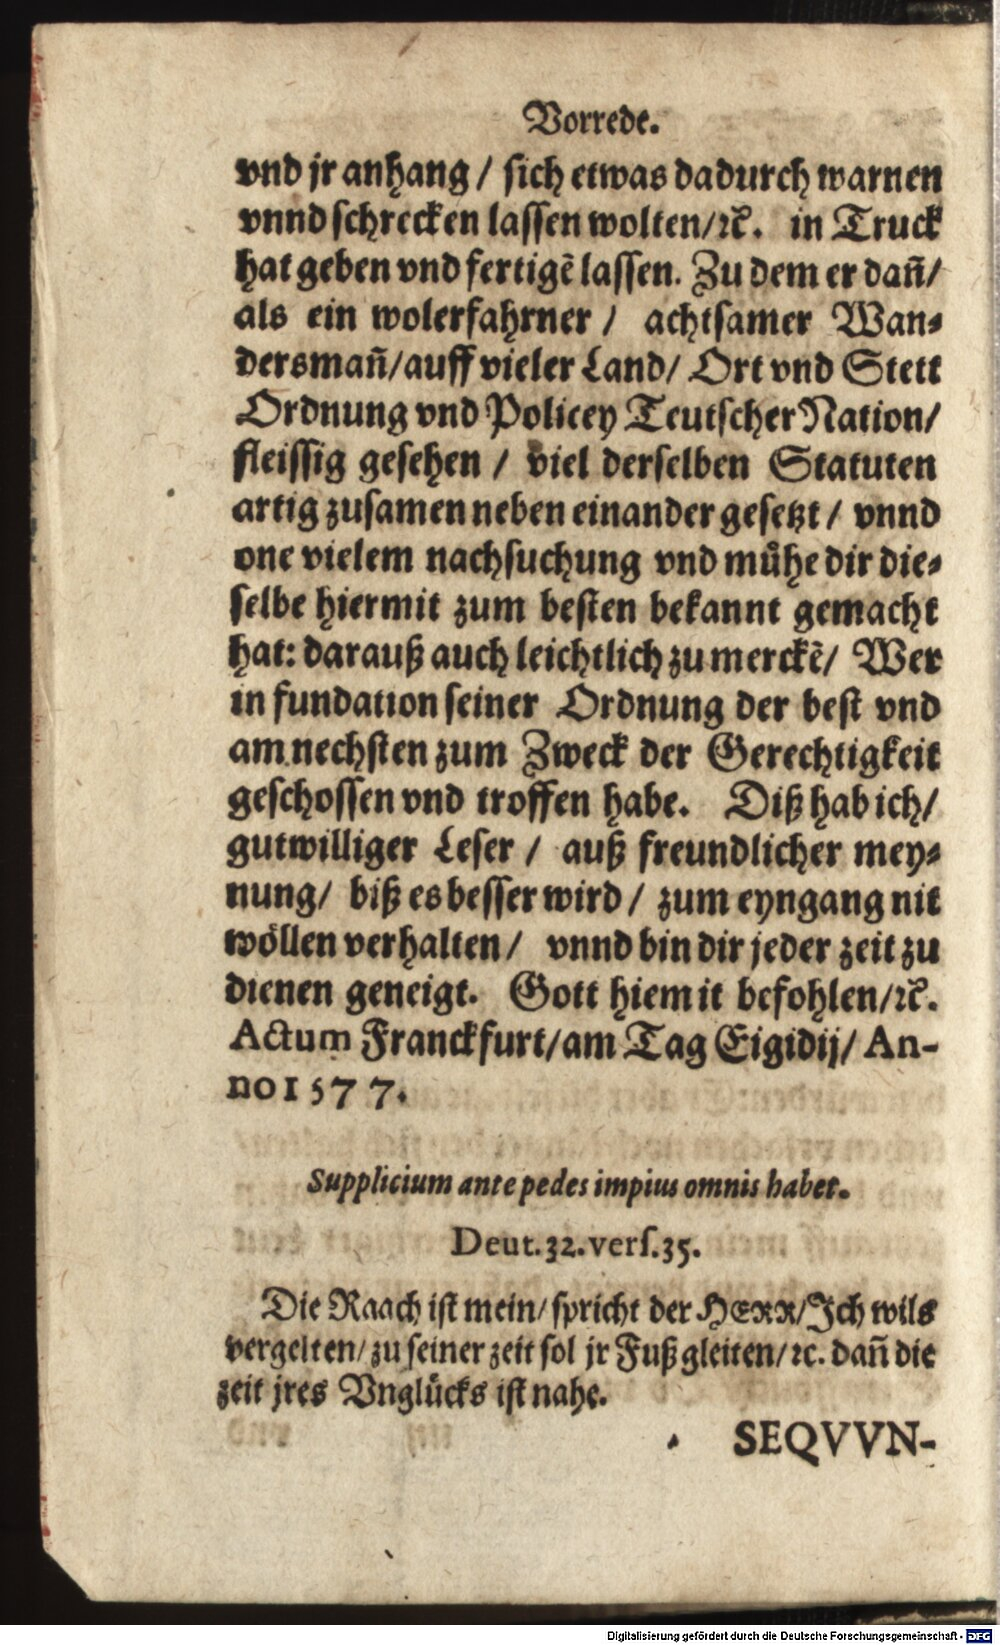 Vorrede.
vnd jr anhang / sich etwas dadurch warnen
vnnd schrecken lassen wolten/ꝛc̄. in Truck
hat geben vnd fertigẽ lassen. Zu dem er dañ/
als ein wolerfahrner / achtsamer Wan⸗
dersmañ/auff vieler Land/ Ort vnd Stett
Ordnung vnd Policey Teutscher Nation/
fleissig gesehen / viel derselben Statuten
artig zusamen neben einander gesetzt / vnnd
one vielem nachsuchung vnd muͤhe dir die⸗
selbe hiermit zum besten bekannt gemacht
hat: darauß auch leichtlich zu merckẽ/ Wer
in fundation seiner Ordnung der best vnd
am nechsten zum Zweck der Gerechtigkeit
geschossen vnd troffen habe. Diß hab ich/
gutwilliger Leser / auß freundlicher mey⸗
nung/ biß es besser wird / zum eyngang nit
woͤllen verhalten / vnnd bin dir jeder zeit zu
dienen geneigt. Gott hiemit befohlen/ꝛc̄.
Actum Franckfurt/am Tag Eigidij/ An-
no 1577.
Supplicium ante pedes impius omnis habet.
Deut. 32. vers. 35.
Die Raach ist mein/ spricht der HERR/Ich wils
vergelten/ zu seiner zeit sol jr Fuß gleiten/ꝛc. dañ die
zeit jres Vngluͤcks ist nahe.
SEQVVN-
Digitalisierung gefördert durch die Deutsche Forschungsgemeinschaft - DFG